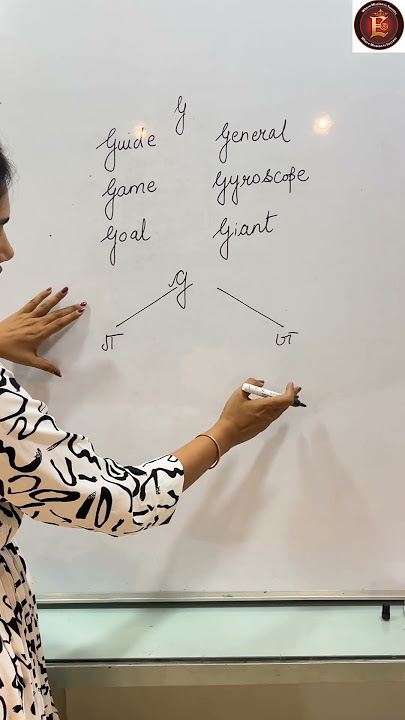 G
Guide General
Game Gyroscope
Goal Giant
G
E